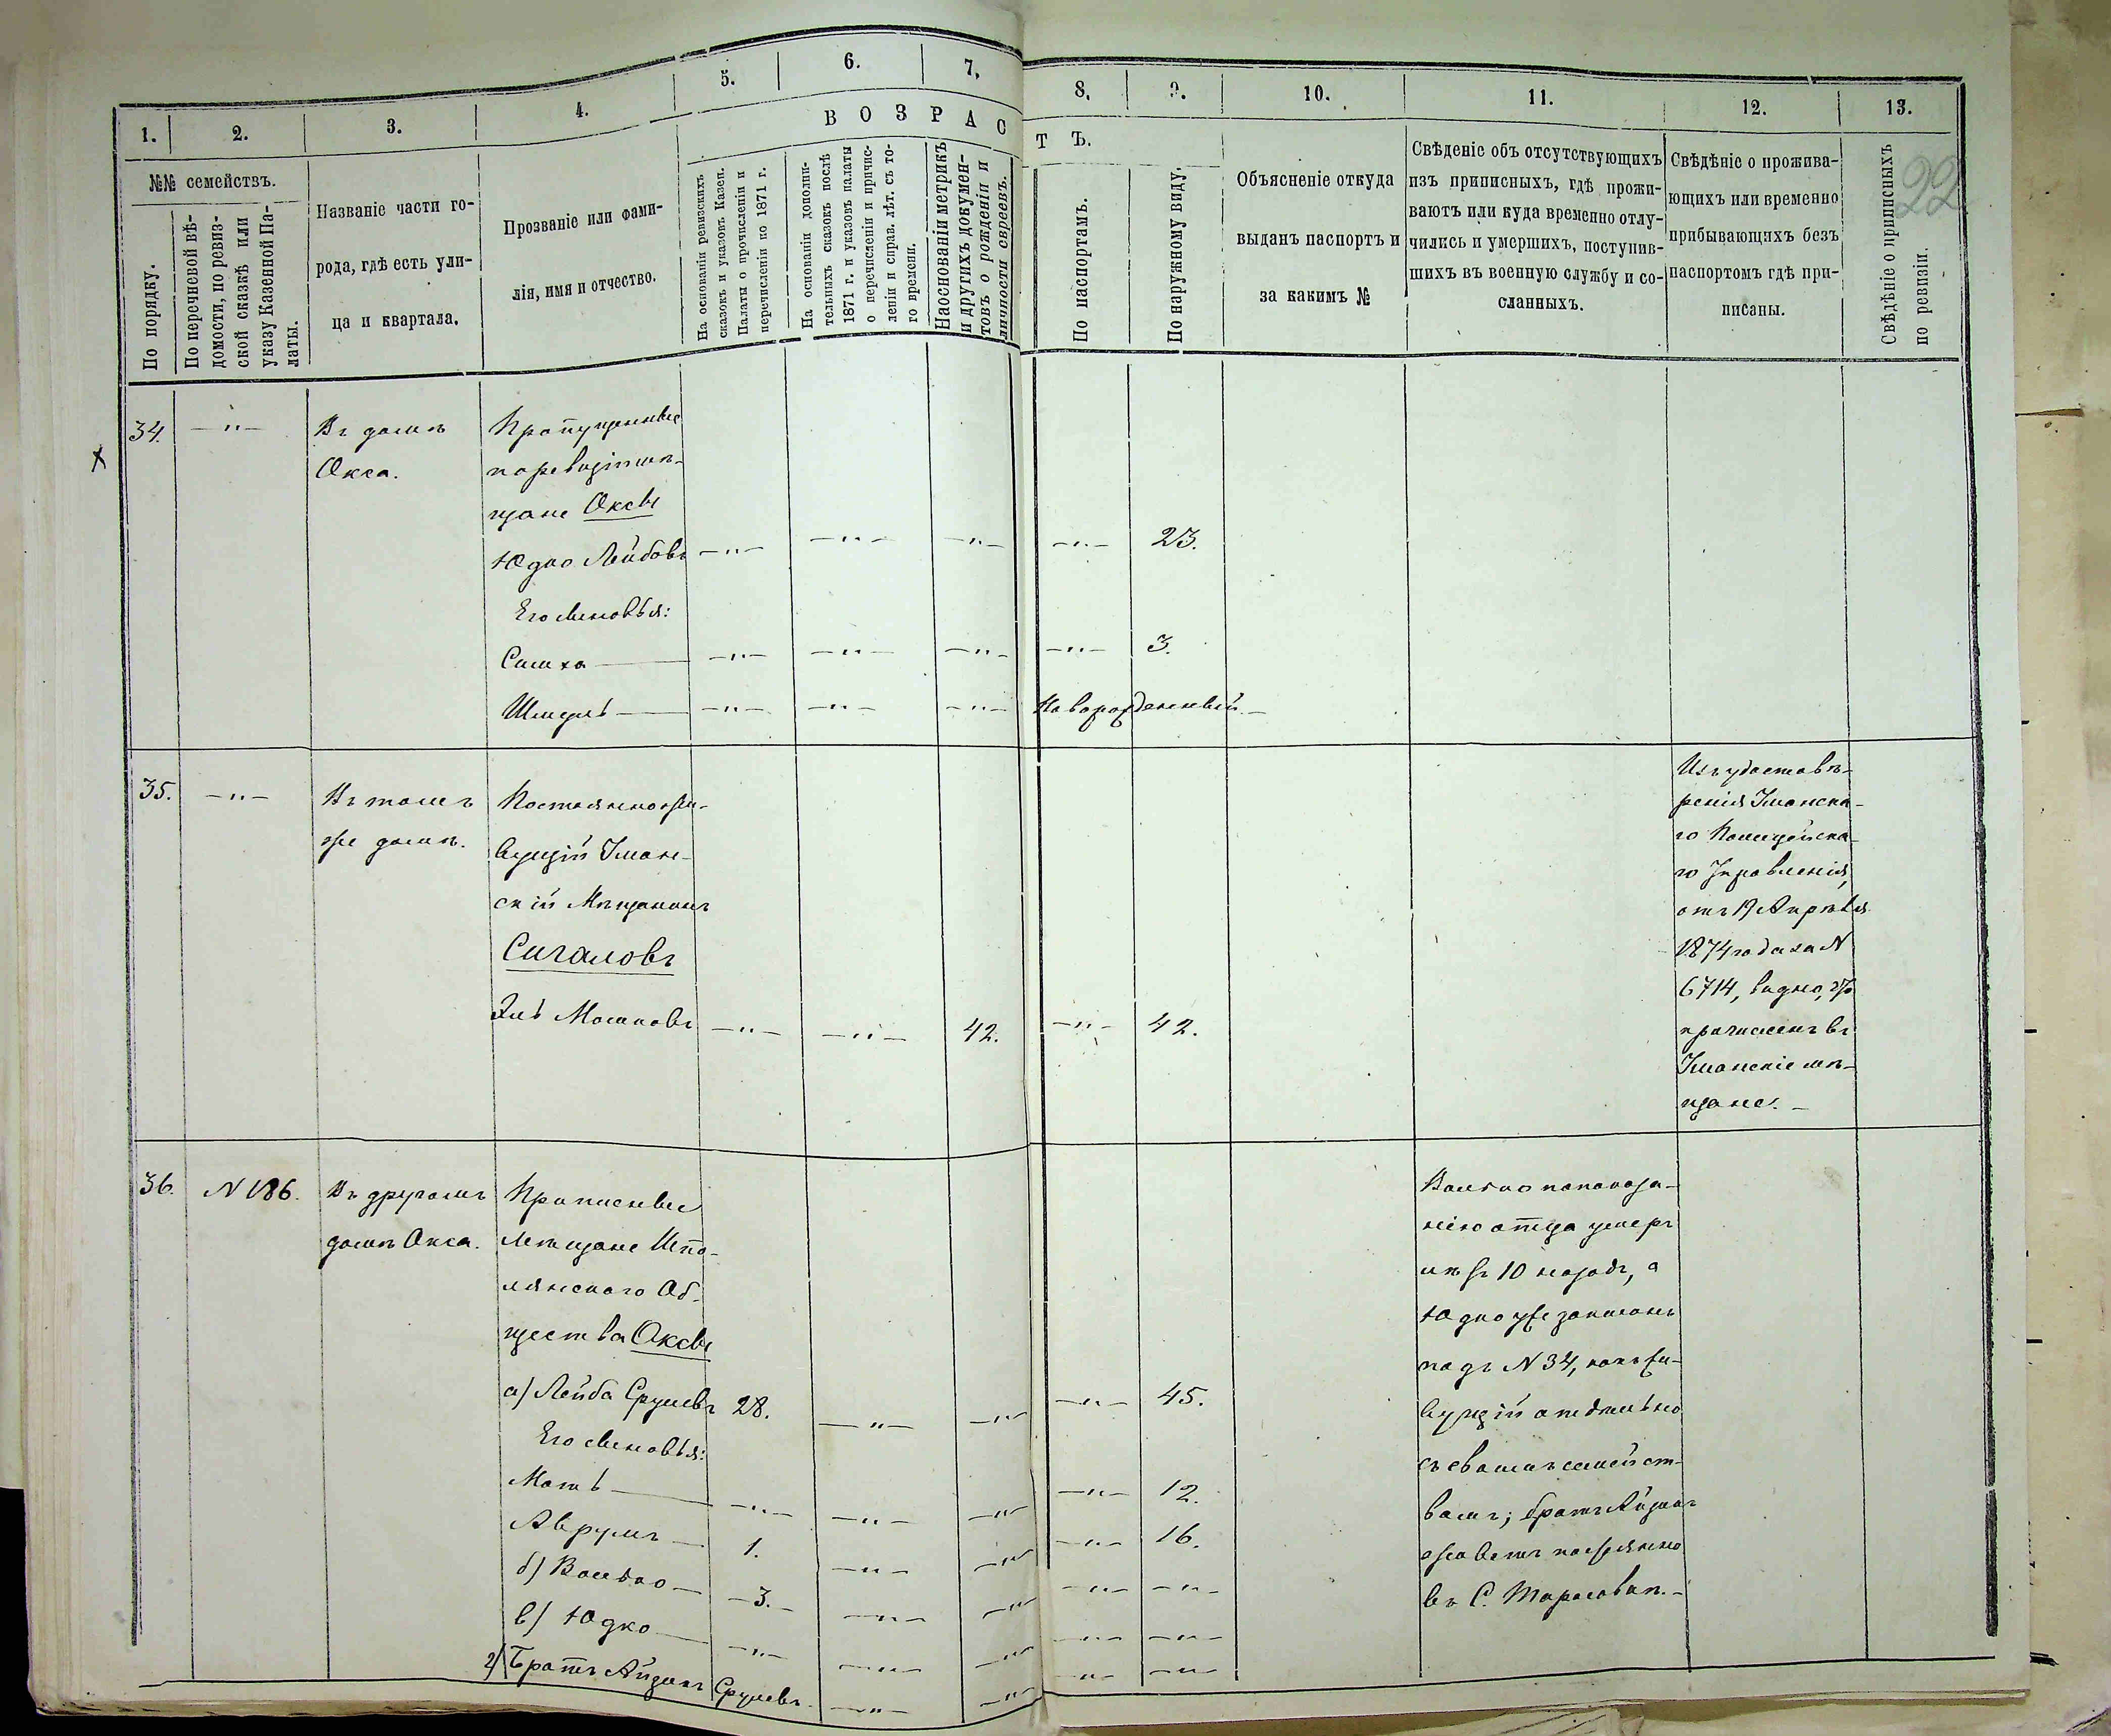 1.
2.
3.
4.
5.
6.
7.
8.
9.
10.
11.
12.
13.
22
ВОЗРАС
ТЪ.
№№ семействъ.
По порядку.
По перечневой вѣ-
домости, по ревиз-
ской сказкѣ или
указу Казенной Па-
латы.
Названіе части го-
рода, гдѣ есть ули-
ца и квартала.
Прозваніе или фами-
лія, имя и отчество.
На основаніи ревизскихъ
сказокъ и указовъ Казен.
Палаты о прочисленіи и
перечисленіи по 1871 г.
На основаніи дополни-
тельныхъ сказокъ послѣ
1871 г. и указовъ палаты
о перечисленіи и причис-
леніи и справ. лѣт. съ то-
го времени.
На основаніи метрикъ
и другихъ докумен-
товъ о рожденіи и
личности евреевъ.
По паспортамъ.
По наружному виду.
Объясненіе откуда
выданъ паспортъ и
за какимъ №
Свѣденіе объ отсутствующихъ
изъ приписныхъ, гдѣ прожи-
ваютъ или куда временно отлу-
чились и умершихъ, поступив-
шихъ въ военную службу и со-
сланныхъ.
Свѣдѣніе о прожива-
ющихъ или временно
прибывающихъ безъ
паспортомъ гдѣ при-
писаны.
Свѣдѣніе о приписныхъ
по ревизіи.
34. —"— Въ домѣ
Окса.
Пропущенные
по ревизіи мѣ-
щане Оксы
Юдко Лейбовъ —"— —"— —"— —"— 23.
Его сыновья:
Симха —"— —"— —"— —"— 3.
Шмуль —"— —"— —"— Новорожденный.—
35. —"— Въ томъ
же домѣ.
Постоянно жи-
вущій Уман-
скій Мѣщанинъ
Сигаловъ
Эль Мошковъ —"— —"— 42. —"— 42.
Изъ удостовѣ-
ренія Уманска-
го Полицейска-
го Управленія,
отъ 19 Апрѣля
1874 года за N
6714, видно, что
причисленъ въ
Уманскіе мѣ-
щане.—
36. N 186. Въ другомъ
домѣ Окса.
Приписные
Мѣщане Шпо-
лянскаго Об-
щества Оксы
а) Лейба Срулевъ 28. —"— —"— —"— 45.
Его сыновья:
Моть —"— —"— —"— —"— 12.
Аврумъ 1. —"— —"— —"— 16.
б) Волько 3. —"— —"— —"— —"—
в) Юдко —"— —"— —"— —"— —"—
г) Братъ Айзикъ Срулевъ. —"— —"— —"— —"—
Волько по показа-
нію отца умеръ
10 назадъ, а
Юдко уже записанъ
подъ N 34, какъ жи-
вущій отдѣльно
съ своимъ семейст-
вомъ; братъ Айзикъ
въ С. Тарасовкѣ.—